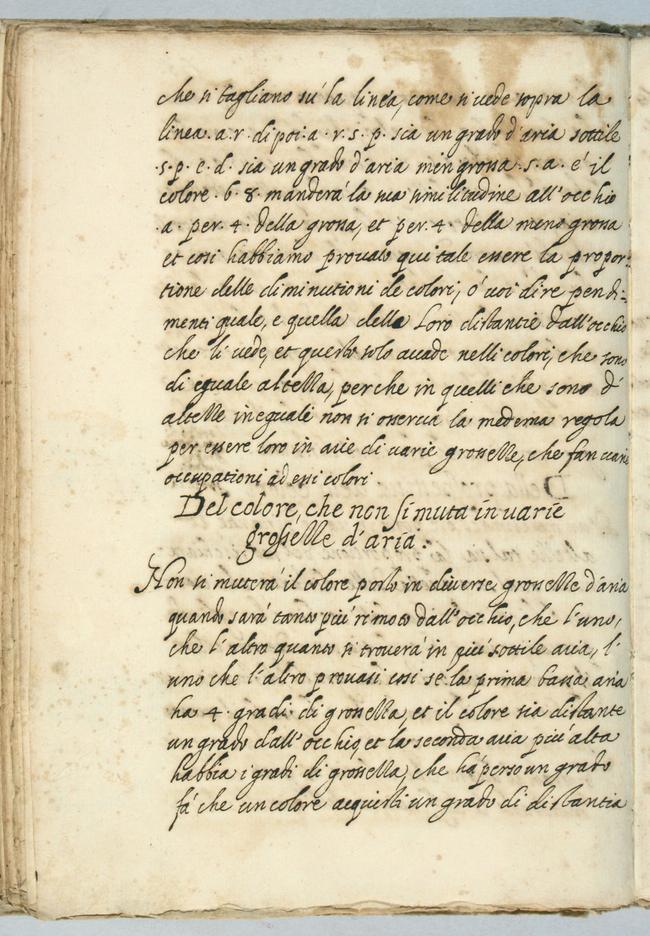 che si tagliano sú la linea, come si vede sopra la
linea .a.r. di poi .a. r. s. p. sia un grado d'aria sottile
.s. p. c. d. sia un grado d'aria men grossa .s. a. é il
colore .b. 8. manderá la sua similitudine all'occhio
.a. per .4. della grossa, et per .4. della meno grossa
et cosi habbiamo provato qui tale essere la propor=
tione delle diminutioni de colori, ó voi dire perdi=
menti quale, e quella delle loro distantie dall'occhio
che li vede, et questo solo accade nelli colori, che sono
di eguale altezza, perche in quelli che sono d'
altezze ineguali non si osserva la medema regola
per essere loro in arie di varie grossezze, che fan varie
occupationi ad essi colori.
Del colore, che non si muta in varie
grossezze d'aria.
Non si muterá il colore posto in diverse grossezze d'aria
quando sará tanto piú rimoto dall'occhio, che l'uno,
che l'altro quanto si troverá in piú sottile aria, l'
uno che l'altro provasi cosi se la prima bassa aria
ha 4. gradi di grossezza, et il colore sia distante
un grado dall'occhio, et la seconda aria piú alta
habbia i gradi di grossezza, che há perso un grado
fá che un colore acquisti un grado di distantia